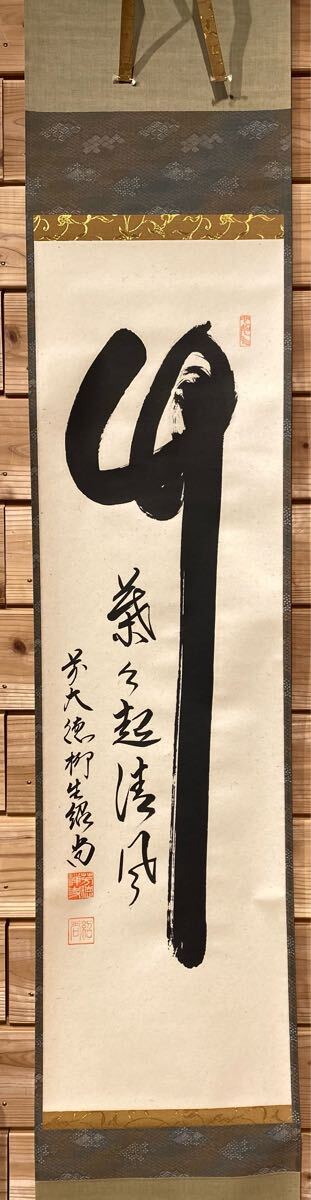 竹
葉々起清風
前大徳柳生紹尚
紹尚